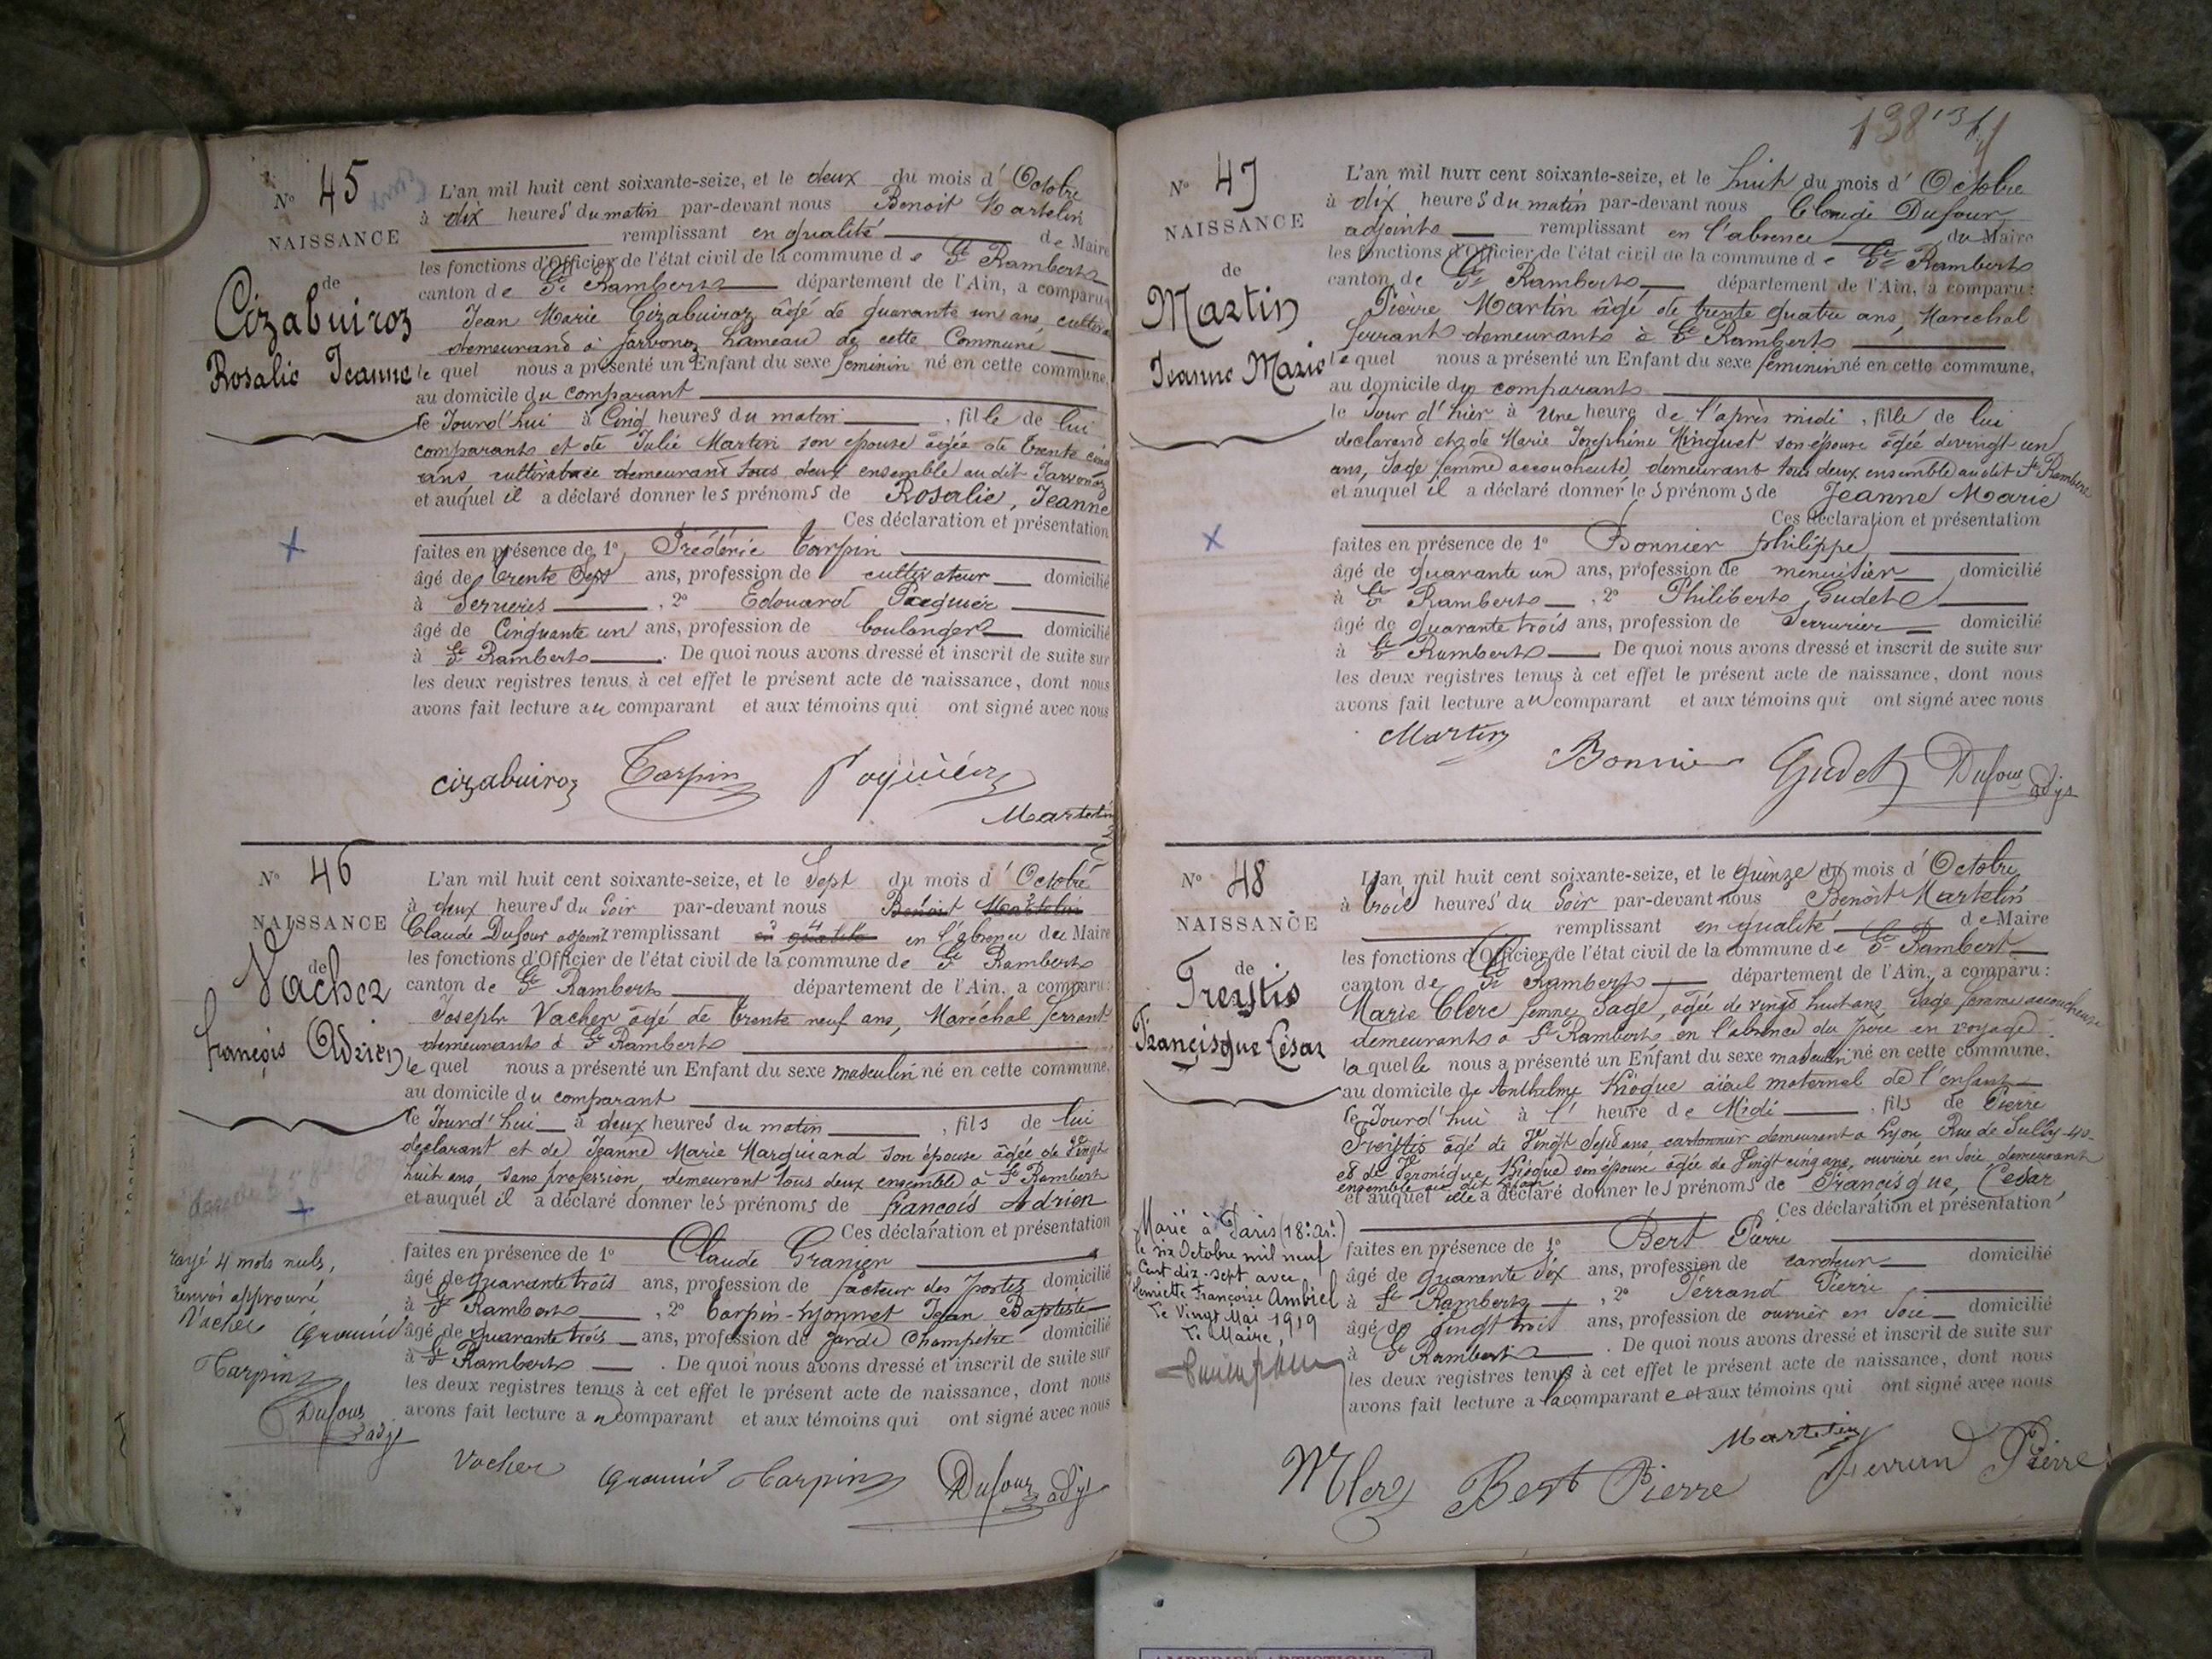 N° 45
NAISSANCE
de
Cizabuiroz
Rosalie Jeanne
L'an mil huit cent soixante-seize, et le deux du mois d'Octobre
à dix heures du matin par-devant nous Benoit Martelin
remplissant en qualité de Maire
les fonctions d'Officier de l'état civil de la commune de St Rambert
canton de St Rambert département de l'Ain, a comparu
Jean Marie Cizabuiroz âgé de quarante un ans,
demeurand à Javornoz hameau de cette Commune
lequel nous a présenté un Enfant du sexe feminin né en cette commune,
au domicile du comparant
le Jourd'hui à Cinq heures du matin, fille de lui
comparant et de Julie Martin son epouse âgée de trente cinq
ans cultivatrice demeurand tous deux ensemble au dit Javornoz
et auquel il a déclaré donner les prénoms de Rosalie, Jeanne
Ces déclaration et présentation
faites en présence de 1° Frédéric Tarpin
âgé de trente sept ans, profession de cultivateur domicilié
à Serrieres, 2° Edouard Paquier
âgé de Cinquante un ans, profession de boulanger domicilié
à St Rambert. De quoi nous avons dressé et inscrit de suite sur
les deux registres tenus à cet effet le présent acte de naissance, dont nous
avons fait lecture au comparant et aux témoins qui ont signé avec nous
cizabuiroz Tarpin Paquier
Martelin
N° 46
NAISSANCE
de
Vacher
françois Adrien
L'an mil huit cent soixante-seize, et le Sept du mois d'Octobre
à deux heures du Soir par-devant nous Benoit Martelin
Claude Dufour adjoint remplissant en qualité en l'absence du Maire
les fonctions d'Officier de l'état civil de la commune de St Rambert
canton de St Rambert département de l'Ain, a comparu:
Joseph Vacher âgé de trente neuf ans, Maréchal ferrant
demeurant à St Rambert
lequel nous a présenté un Enfant du sexe masculin né en cette commune,
au domicile du comparant
le Jourd'hui à deux heures du matin, fils de lui
déclarant et de Jeanne Marie Marquiand son épouse âgée de Vingt
huit ans, sans profession, demeurant tous deux ensemble à St Rambert
et auquel il a déclaré donner les prénoms de françois Adrien
Ces déclaration et présentation
faites en présence de 1° Claude Granier
âgé de quarante trois ans, profession de facteur des postes domicilié
à St Rambert, 2° Carpin-Lyonnet Jean Baptiste
âgé de quarante trois ans, profession de garde Champêtre domicilié
à St Rambert. De quoi nous avons dressé et inscrit de suite sur
les deux registres tenus à cet effet le présent acte de naissance, dont nous
avons fait lecture au comparant et aux témoins qui ont signé avec nous
rayé 4 mots nuls,
renvoi approuvé
Vacher
Tarpin
Dufour
adj
Vacher Tarpin Dufour adj
138
N° 47
NAISSANCE
de
Martin
Jeanne Marie
L'an mil huit cent soixante-seize, et le huit du mois d'Octobre
à dix heures du matin par-devant nous Claude Dufour
adjoint remplissant en l'absence du Maire
les fonctions d'Officier de l'état civil de la commune de St Rambert
canton de St Rambert département de l'Ain, a comparu:
Pierre Martin âgé de trente quatre ans, Maréchal
ferrant demeurant à St Rambert
lequel nous a présenté un Enfant du sexe feminin né en cette commune,
au domicile du comparant
le Jour d'hier à Une heure de l'après midi, fille de lui
declarand et de Marie Josephine Minguet son épouse âgée de vingt un
ans, Sage femme accoucheuse, demeurant tous deux ensemble au dit St Rambert
et auquel il a déclaré donner les prénoms de Jeanne Marie
Ces déclaration et présentation
faites en présence de 1° Bonnier philippe
âgé de quarante un ans, profession de menuisier domicilié
à St Rambert, 2° Philibert Gudet
âgé de quarante trois ans, profession de Serrurier domicilié
à St Rambert. De quoi nous avons dressé et inscrit de suite sur
les deux registres tenus à cet effet le présent acte de naissance, dont nous
avons fait lecture au comparant et aux témoins qui ont signé avec nous
Martin Bonnier Gudet Dufour
adj
N° 48
NAISSANCE
de
Treystis
Francisque César
L'an mil huit cent soixante-seize, et le quinze du mois d'Octobre
à trois heures du Soir par-devant nous Benoit Martelin
remplissant en qualité de Maire
les fonctions d'Officier de l'état civil de la commune de St Rambert
canton de St Rambert département de l'Ain, a comparu:
Marie Clerc femme Sage, âgée de vingt huit ans, Sage femme accoucheuse
demeurant à St Rambert, en l'absence du père en voyage
laquelle nous a présenté un Enfant du sexe masculin né en cette commune,
au domicile de Anthelme Kiogue aieul maternel de l'enfant
le Jourd'hui à l'heure de Midi, fils de Pierre
Treystis âgé de Vingt Sept ans cartonnier demeurant à Lyon Rue de Sully 40
et de Veronique Kiogue son épouse âgée de Vingt cinq ans, ouvrière en Soie, demeurant
ensemble au dit Lyon
et auquel elle a déclaré donner les prénoms de Francisque, Cesar
Ces déclaration et présentation
Marié à Paris (18e ar.)
le six Octobre mil neuf
Cent dix-sept avec
Henriette Françoise Ambiel
Le Vingt Mai 1919
Le Maire,
faites en présence de 1° Bert Pierre
âgé de quarante Six ans, profession de cardeur domicilié
à St Rambert, 2° Ferrand Pierre
âgé de Vingt trois ans, profession de ouvrier en Soie domicilié
à St Rambert. De quoi nous avons dressé et inscrit de suite sur
les deux registres tenus à cet effet le présent acte de naissance, dont nous
avons fait lecture a la comparante et aux témoins qui ont signé avec nous
Martelin
M Clerc Bert Pierre Ferrand Pierre